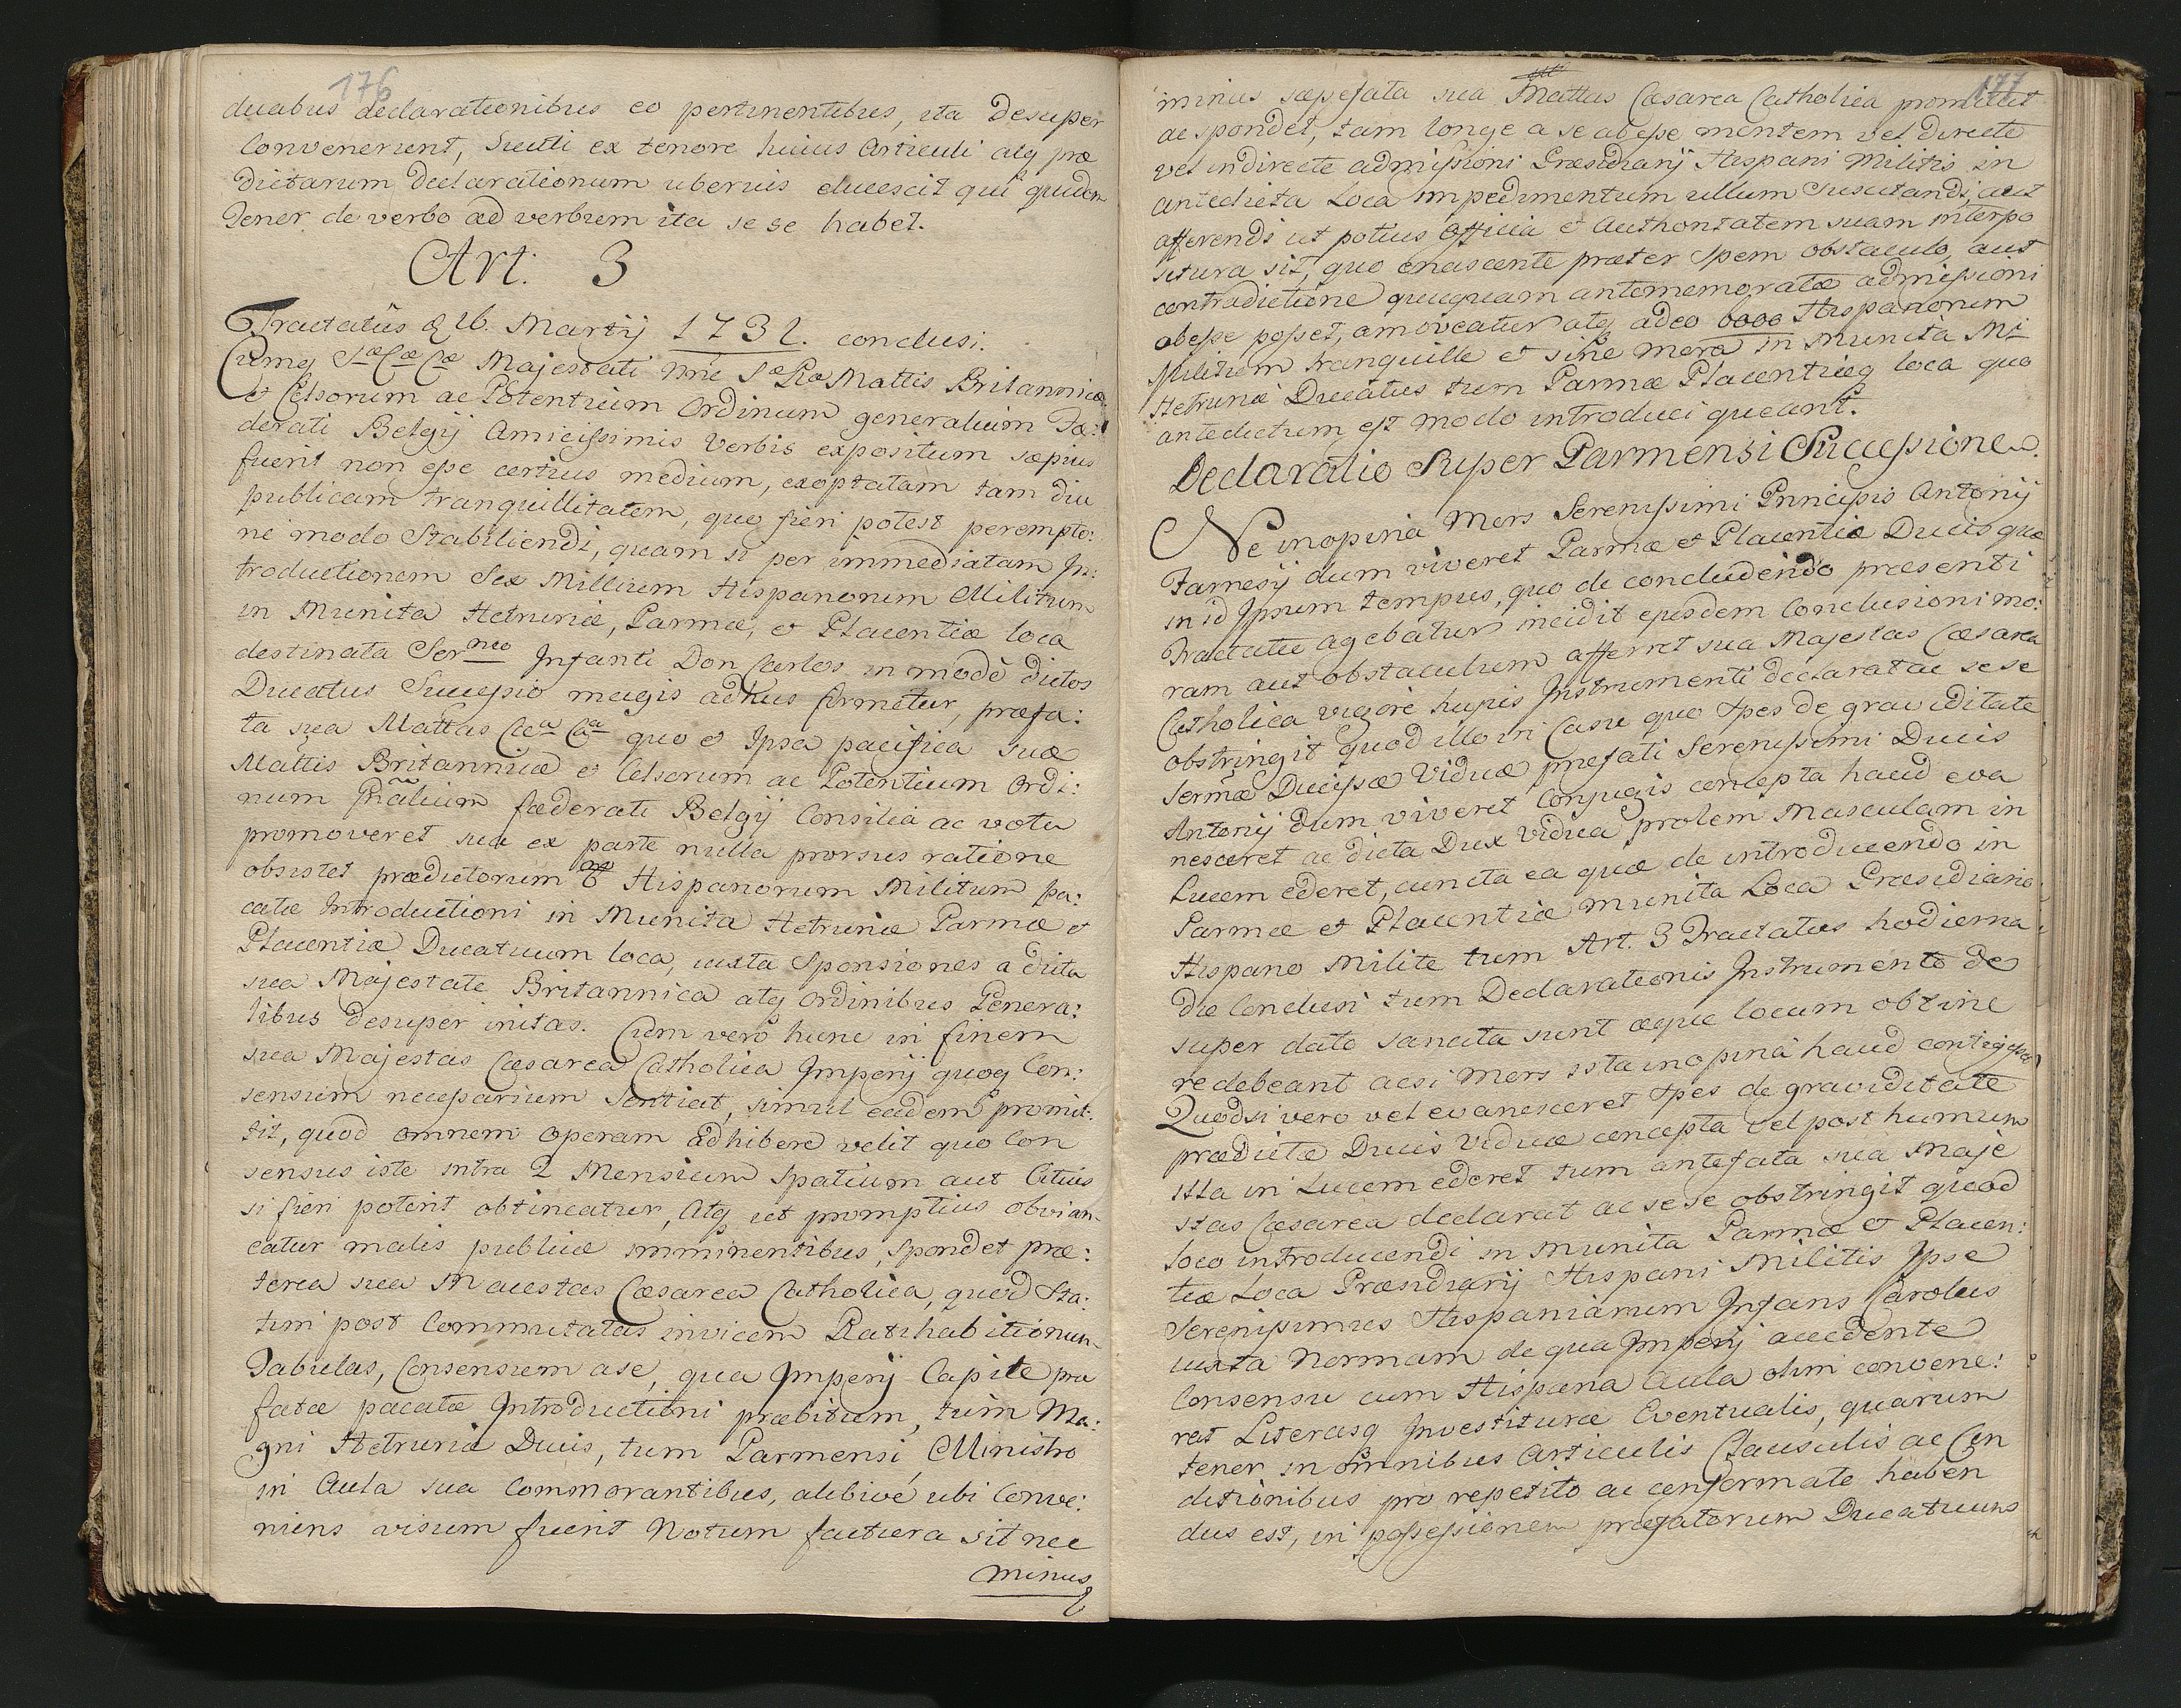 176
duabus declarationibus eo pertinentibus, ita desuper
Convenerunt, Sicuti ex tenore huius Articuli atq præ
dictarum declarationum uberius elucescit qui quidem
Tenor de verbo ad verbum ita se se habet.
Art. 3
Tractatûs d 16. Martij 1731. conclusi.
Cumq Sæ Cæ Cæ Majestati nŏie Sæ Ræ Mattis Britannicæ
et Celsorum ac Potentium Ordinum generalium Fæ:
derati Belgij Amicissimis Verbis expositum sæpius
fuerit non esse certius medium, exoptatam tam diu
publicam tranquillitatem, quo fieri potest perempto:
rie modo Stabiliendi, quam si per immediatam In:
troductionem Sex Millium Hispanorum Militum
in Munita Hetruriæ, Parmæ, et Placentiæ loca
destinata Ser.mo Infanti Don Carlos in modò dictos
Ducatus Successio magis adhuc firmetur, præfa:
ta sua Mattas Cæa Caa quo et Ipsa pacifica suæ
Mattis Britannicæ et Celsorum ac Potentium Ordi:
num Gñalium fæderati Belgij Consilia ac vota
promoveret sua ex parte nulla prorsus ratione
obsistet prædictorum 6 Hispanorum Militum pa:
catæ Introductioni in Munita Hetruriæ Parmæ et
Placentiæ Ducatuum loca, iuxta Sponsiones a dicta
sua Majestate Britannica atq Ordinibus Genera:
libus desuper initas. Cum vero hunc in finem
sua Majestas Cæsarea Catholica Imperij quoq Con:
sensum necessarium Sentiat, simul eadem promit:
tit, quod omnem operam adhibere velit quo Con
sensus iste intra 2 Mensium Spatium aut Citius
si fieri poterit obtineatur, Atq ut promptius obvian-
eatur malis publicæ imminentibus, Spondet præ:
terea sua Maiestas Cæsarea Catholica, quod Sta:
tim post Commutatas invicem Ratihabitionum
Tabulas, Consensum a se, qua Imperij Capite præ
fatæ pacatæ Introductioni præbitum, tum Ma:
gni Hetruriæ Ducis, tum Parmensi Ministro
in Aula sua Commorantibus, alibive ubi Conve:
niens visum fuerit Notum factura sit nec
minus
177
minus sæpefata sua Mattas Cæsarea Catholica promittit
ac spondet, tam longe a se abesse mentem vel directe
vel indirecte admissioni Præsidiarij Hispani Militis in
antedicta Loca impedimentum ullum Suscitandi, aut
afferendi ut potius Officia et Authoritatem suam interpo
situra sit, quo enascente præter Spem obstaculo, aut
contradictione quicquam antememoratæ admissioni
obesse posset, amoveatur atq adeo 6000 Hispanorum
Militum tranquille et sine mora in Munita Mi
Hetruriæ Ducatus tum Parmæ Placentiæq loca quo
antedictum est modo introduci queant.
Declaratio Super Parmensi Successione.
Ne inopina Mors Serenissimi Principis Antonij
Farnesij dum viveret Parmæ et Placentiæ Ducis quæ
in id Ipsum tempus, quo de concludendo præsenti
Tractatu agebatur incidit ejusdem Conclusioni mo:
ram aut obstaculum afferret sua Majestas Cæsarea
Catholica vigore hujus Instrumenti declarat ac se se
obstringit quod illo in Casu quo Spes de graviditate
Sermæ Ducissæ Viduæ præfati Serenissimi Ducis
Antonij dum viveret Conjugis concepta haud eva
nesceret ac dicta Dux vidua prolem Masculam in
Lucem ederet, cuncta ea quæ de introducendo in
Parmæ et Placentiæ munita Loca Præsidiario
Hispano Milite tum Art. 3 Tractatus hodierna
die Conclusi tum Declarationis Instrumento de
super dato Sancita sunt æque locum obtine
re debeant ac si Mors ista inopina haud contigisset
Quodsi vero vel evanesceret Spes de graviditate
prædictæ Ducis viduæ concepta vel post humum
illa in Lucem ederet tum antefata sua Maje
stas Cæsarea declarat ac se se obstringit quod
loco introducendi in Munita Parmæ et Placen:
tiæ Loca Præsidiarij Hispani Militis Ipse
Serenissimus Hispaniarum Infans Carolus
iuxta Normam de qua Imperij accedente
Consensu cum Hispana Aula olim convene:
rat Literasq Investituræ Eventualis, quarum
tenor in omnibus Articulis Clausulis ac Con
ditionibus pro repetito ac confirmato haben
dus est, in possessionem præfatorum Ducatuum